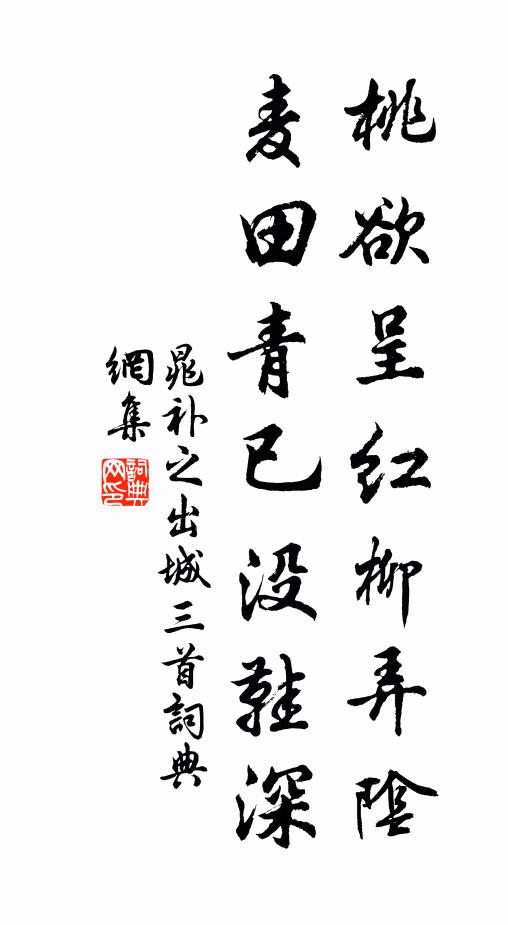 桃欲呈红柳弄陰
麦田青已没鞋深
晁补之出城三首詞典
網集
詞典网印